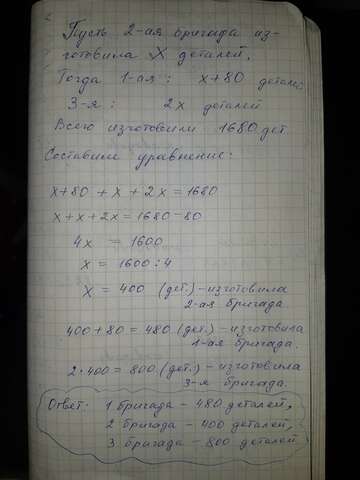 Пусть 2-ая бригада из-
готовила X деталей,
Тогда 1-ая: x+80 детале
3-я: 2x деталей
Всего изготовили 1680 дет
Составим уравнение:
x+80 + x + 2x = 1680
x + x + 2x = 1680-80
4x = 1600
x = 1600:4
x = 400 (дет.) - изготовила
2-ая бригада.
400 + 80 = 480 (дет.) - изготовила
1-ая бригада.
2·400 = 800 (дет.) - изготовила
3-я бригада.
Ответ: 1 бригада - 480 деталей,
2 бригада - 400 деталей,
3 бригада - 800 деталей